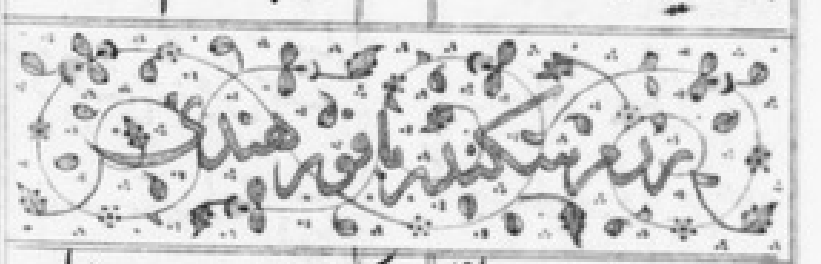 رزم سکندر با فور هندی